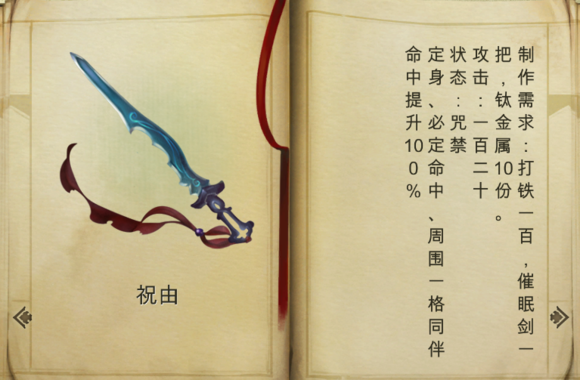 祝由
制作需求：打铁一百，催眠剑一
把，钛金属10份。
攻击：一百二十
状态：咒禁
定身、必定命中、周围一格同伴
命中提升100%